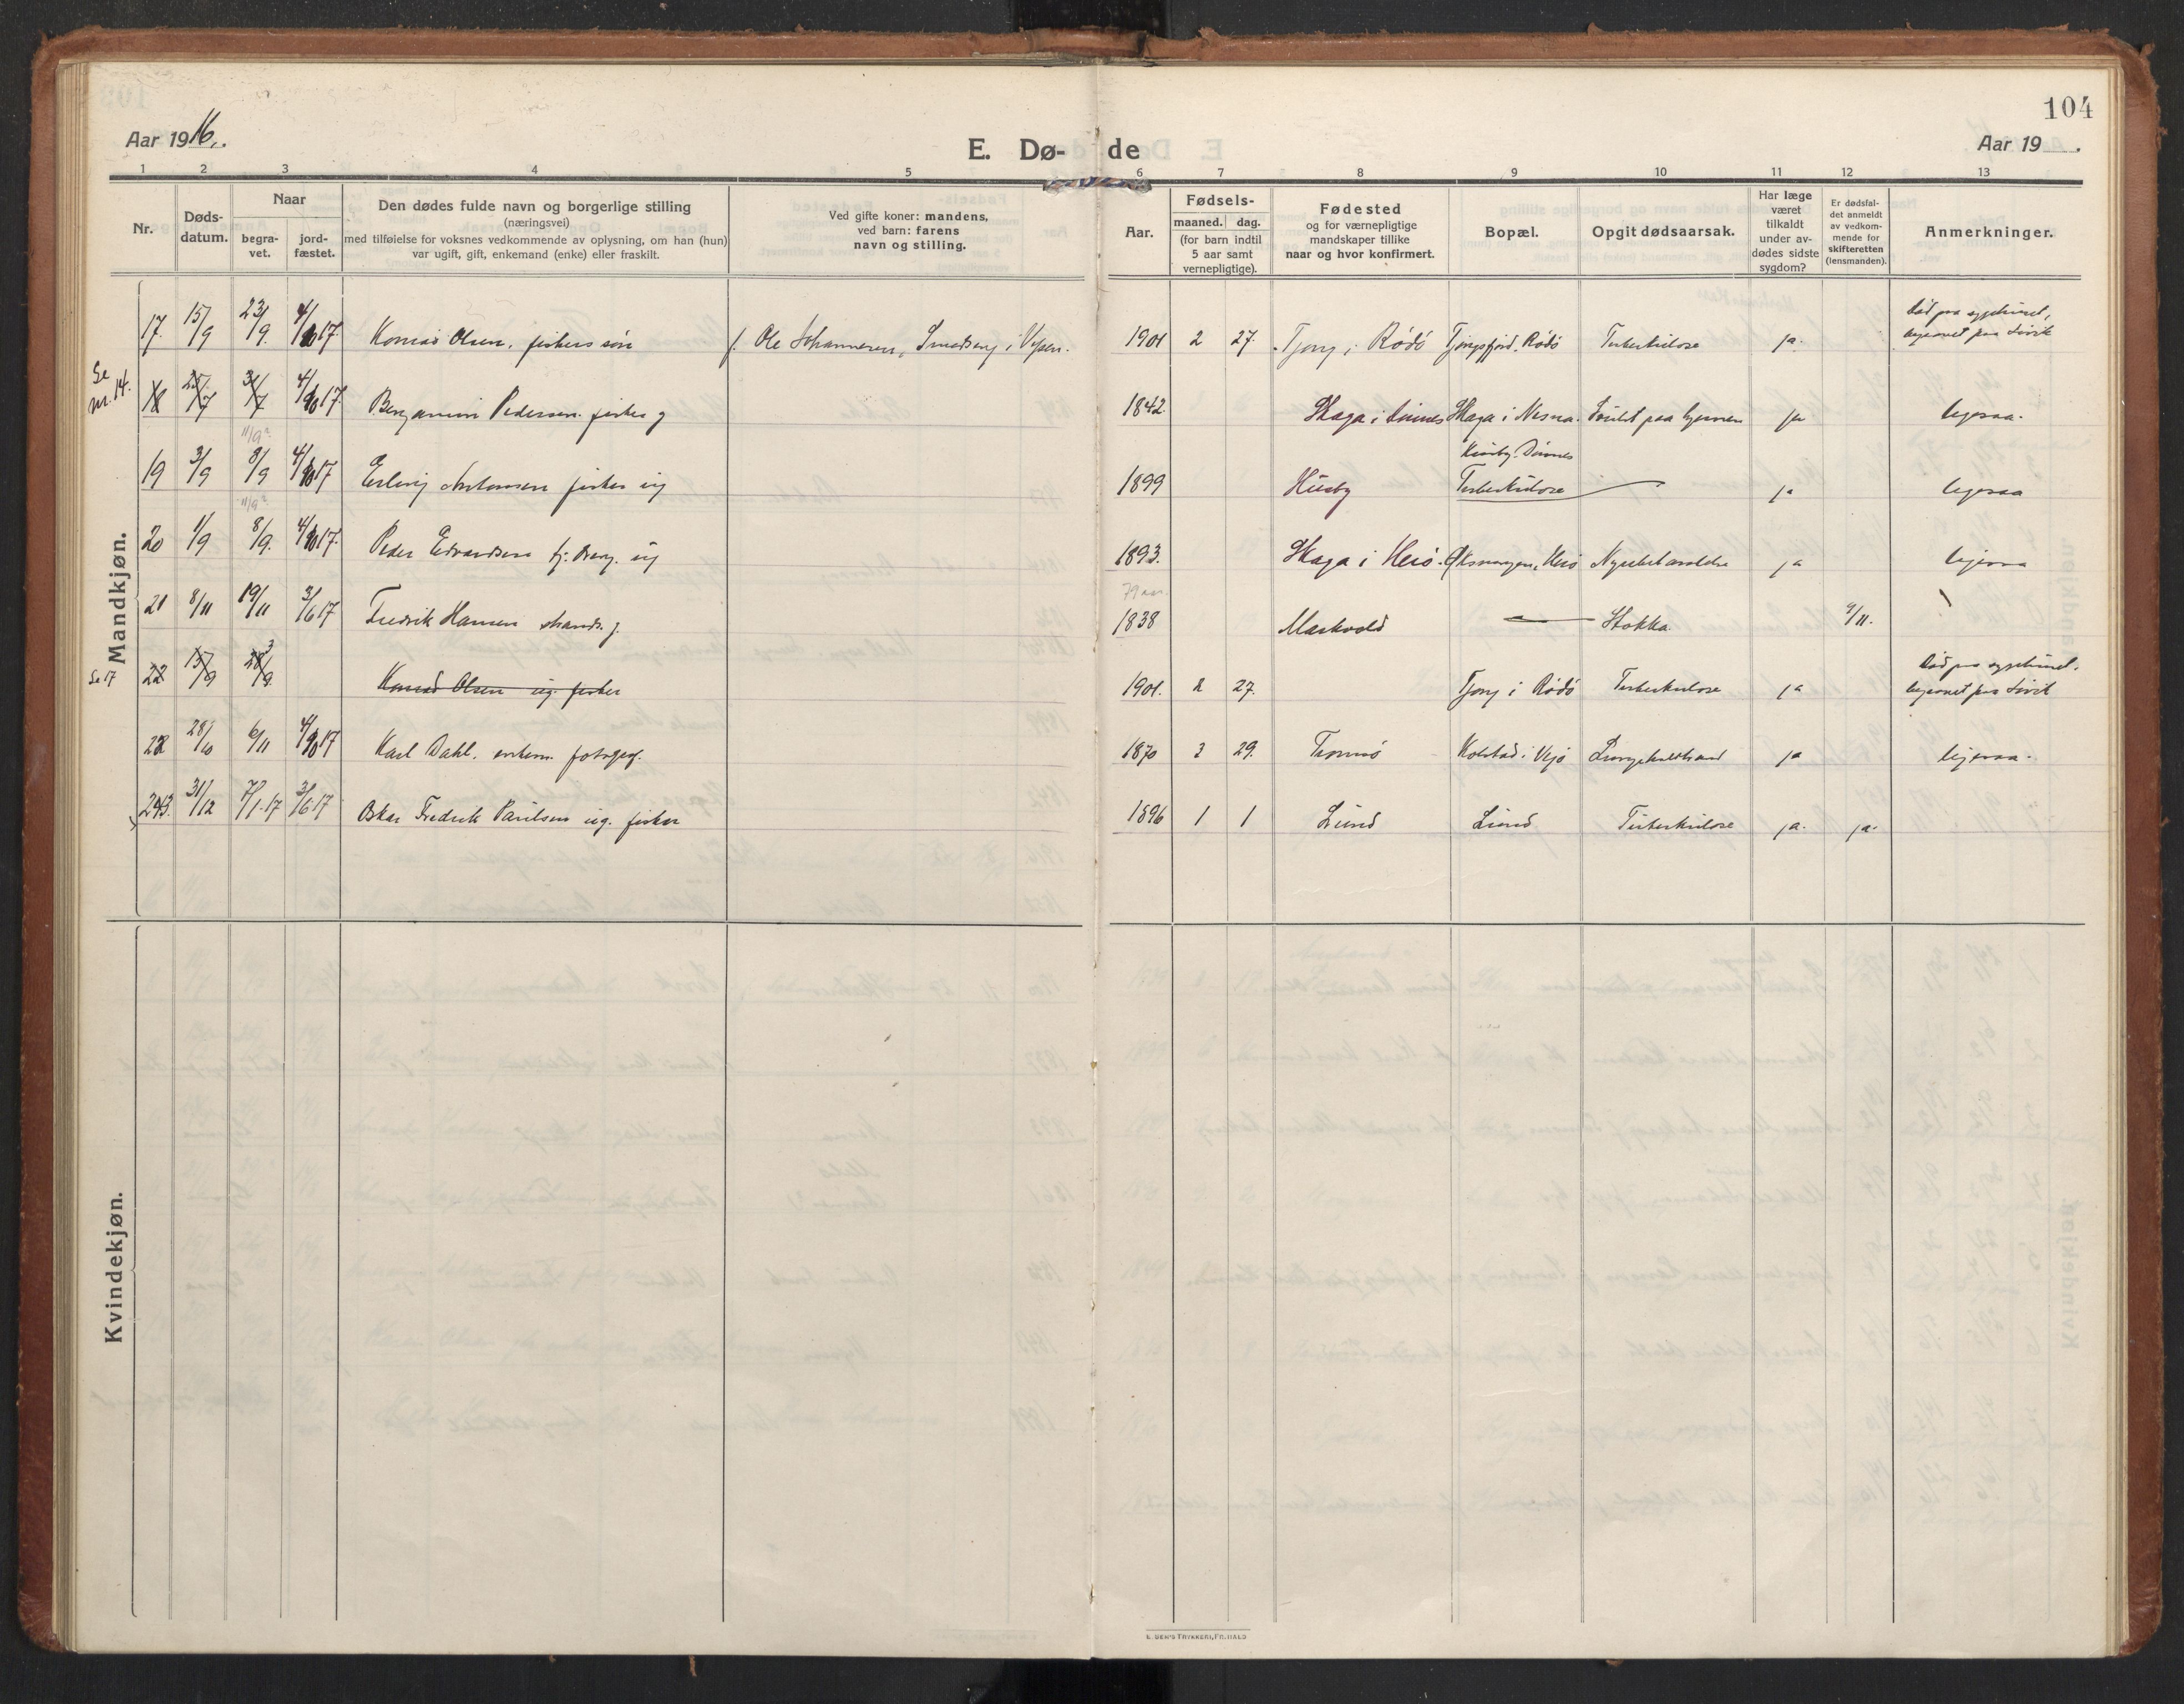 104
Aar 1916.
E. Dø-
de
Aar 19 .
1 2 3 4 5 6 7 8 9 10 11 12 13
Nr.
Døds-
datum.
Naar
begra-
vet.
jord-
fæstet.
Den dødes fulde navn og borgerlige stilling
(næringsvei)
med tilføielse for voksnes vedkommende av oplysning, om han (hun)
var ugift, gift, enkemand (enke) eller fraskilt.
Ved gifte koner: mandens,
ved barn: farens
navn og stilling.
Aar.
Fødsels-
maaned. dag.
(for barn indtil
5 aar samt
vernepligtige).
Fødested
og for værnepligtige
mandskaper tillike
naar og hvor konfirmert.
Bopæl.
Opgit dødsaarsak.
Har læge
været
tilkaldt
under av-
dødes sidste
sygdom?
Er dødsfal-
det anmeldt
av vedkom-
mende for
skifteretten
(lensmanden).
Anmerkninger.
Mandkjøn.
17. 15/9 23/9. 4/10 17. Konrad Olsen, fiskers søn f. Ole Johannesen, 1901 2 27. Tjong i Rödö Tjongsfjord, Rödö Tuberkulose ja. Död paa sygehuset,
begravet paa
Se
nr. 14.
18 25/7 31/7 4/10 17. Benjamin Pedersen fisker g 1842. Skaga i Skaga i Nesna. ja ligesaa.
11/9?
19 3/9 8/9 4/10 17 Erling Antonsen fisker ug 1899 Husby Husby. Dönnes
Tuberkulose ja ligesaa
11/9?
20 1/9 8/9. 4/10 17. Peder Edvardsen ug 1893. Skaga i Herö. Herö ja ligesaa
79 aar.
21 8/11 19/11 3/6 17 Fredrik Hansen strands. g. 1838 Markvold Stokka. 9/11.
Se 17
22 15/9 23/9. Konrad Olsen ug. fisker 1901. 2 27. Tjong i Rödö Tuberkulose ja Död paa sygehuset.
begravet paa
28/10 6/11 4/10 17 Karl Dahl. enkem. fotograf. 1870 3 29. Tromsö Kolstad i ja ligesaa.
31/12 7/1. 17 3/6 17 Oskar Fredrik Paulsen ug. fisker 1896 1 1 Lund Lund Tuberkulose ja. ja.
Kvindekjøn.